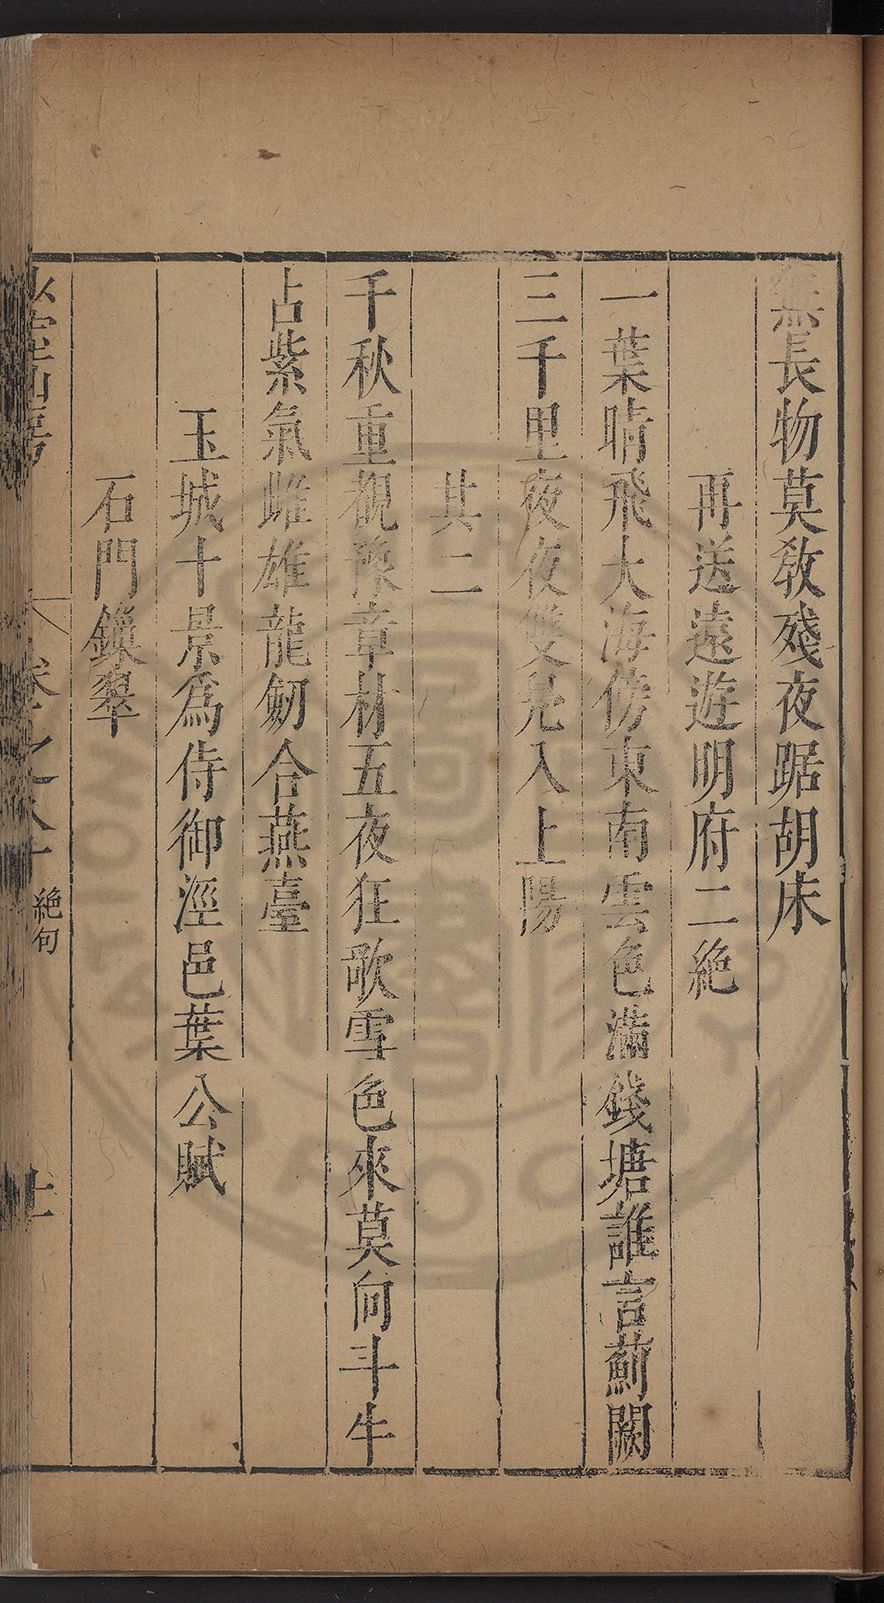 無長物莫教殘夜踞胡床
再送遠遊明府二絶
一葉晴飛大海傍東南雲色滿錢塘誰言薊闕
三千里夜夜雙鳬入上陽
其二
千秋重覩豫章材五夜狂歌雪色來莫向斗牛
占紫氣雌雄龍劒合燕臺
玉城十景爲侍御涇邑葉公賦
石門鎖翠
絶句